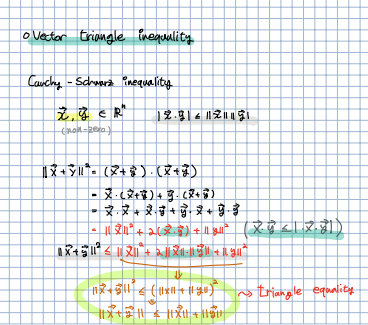 o Vector triangle inequality
Cauchy - Schwarz inequality
x⃗, y⃗ ∈ ℝⁿ |x⃗·y⃗| ≤ ||x⃗|| ||y⃗||
(non-zero)
||x⃗+y⃗||² = (x⃗+y⃗)·(x⃗+y⃗)
= x⃗·(x⃗+y⃗) + y⃗·(x⃗+y⃗)
= x⃗·x⃗ + x⃗·y⃗ + y⃗·x⃗ + y⃗·y⃗
= ||x⃗||² + 2(x⃗·y⃗) + ||y||² (x⃗·y⃗ ≤ |x⃗·y⃗|)
||x⃗+y⃗||² ≤ ||x⃗||² + 2||x⃗||·||y⃗|| + ||y||²
⇓
||x⃗+y⃗||² ≤ (||x|| + ||y||)² → triangle equality
||x⃗+y⃗|| ≤ ||x⃗|| + ||y⃗||